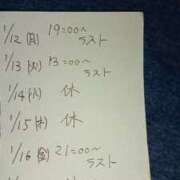 1/12 (月) 19=00〜
ラスト
1/13 (火) 13=00〜
ラスト
1/14 (水) 休
1/15 (木) 休
1/16 (金) 21=00〜
ラスト